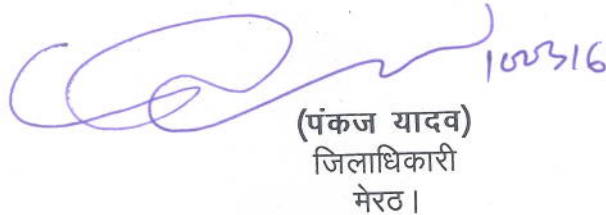 100316
(पंकज यादव)
जिलाधिकारी
मेरठ।